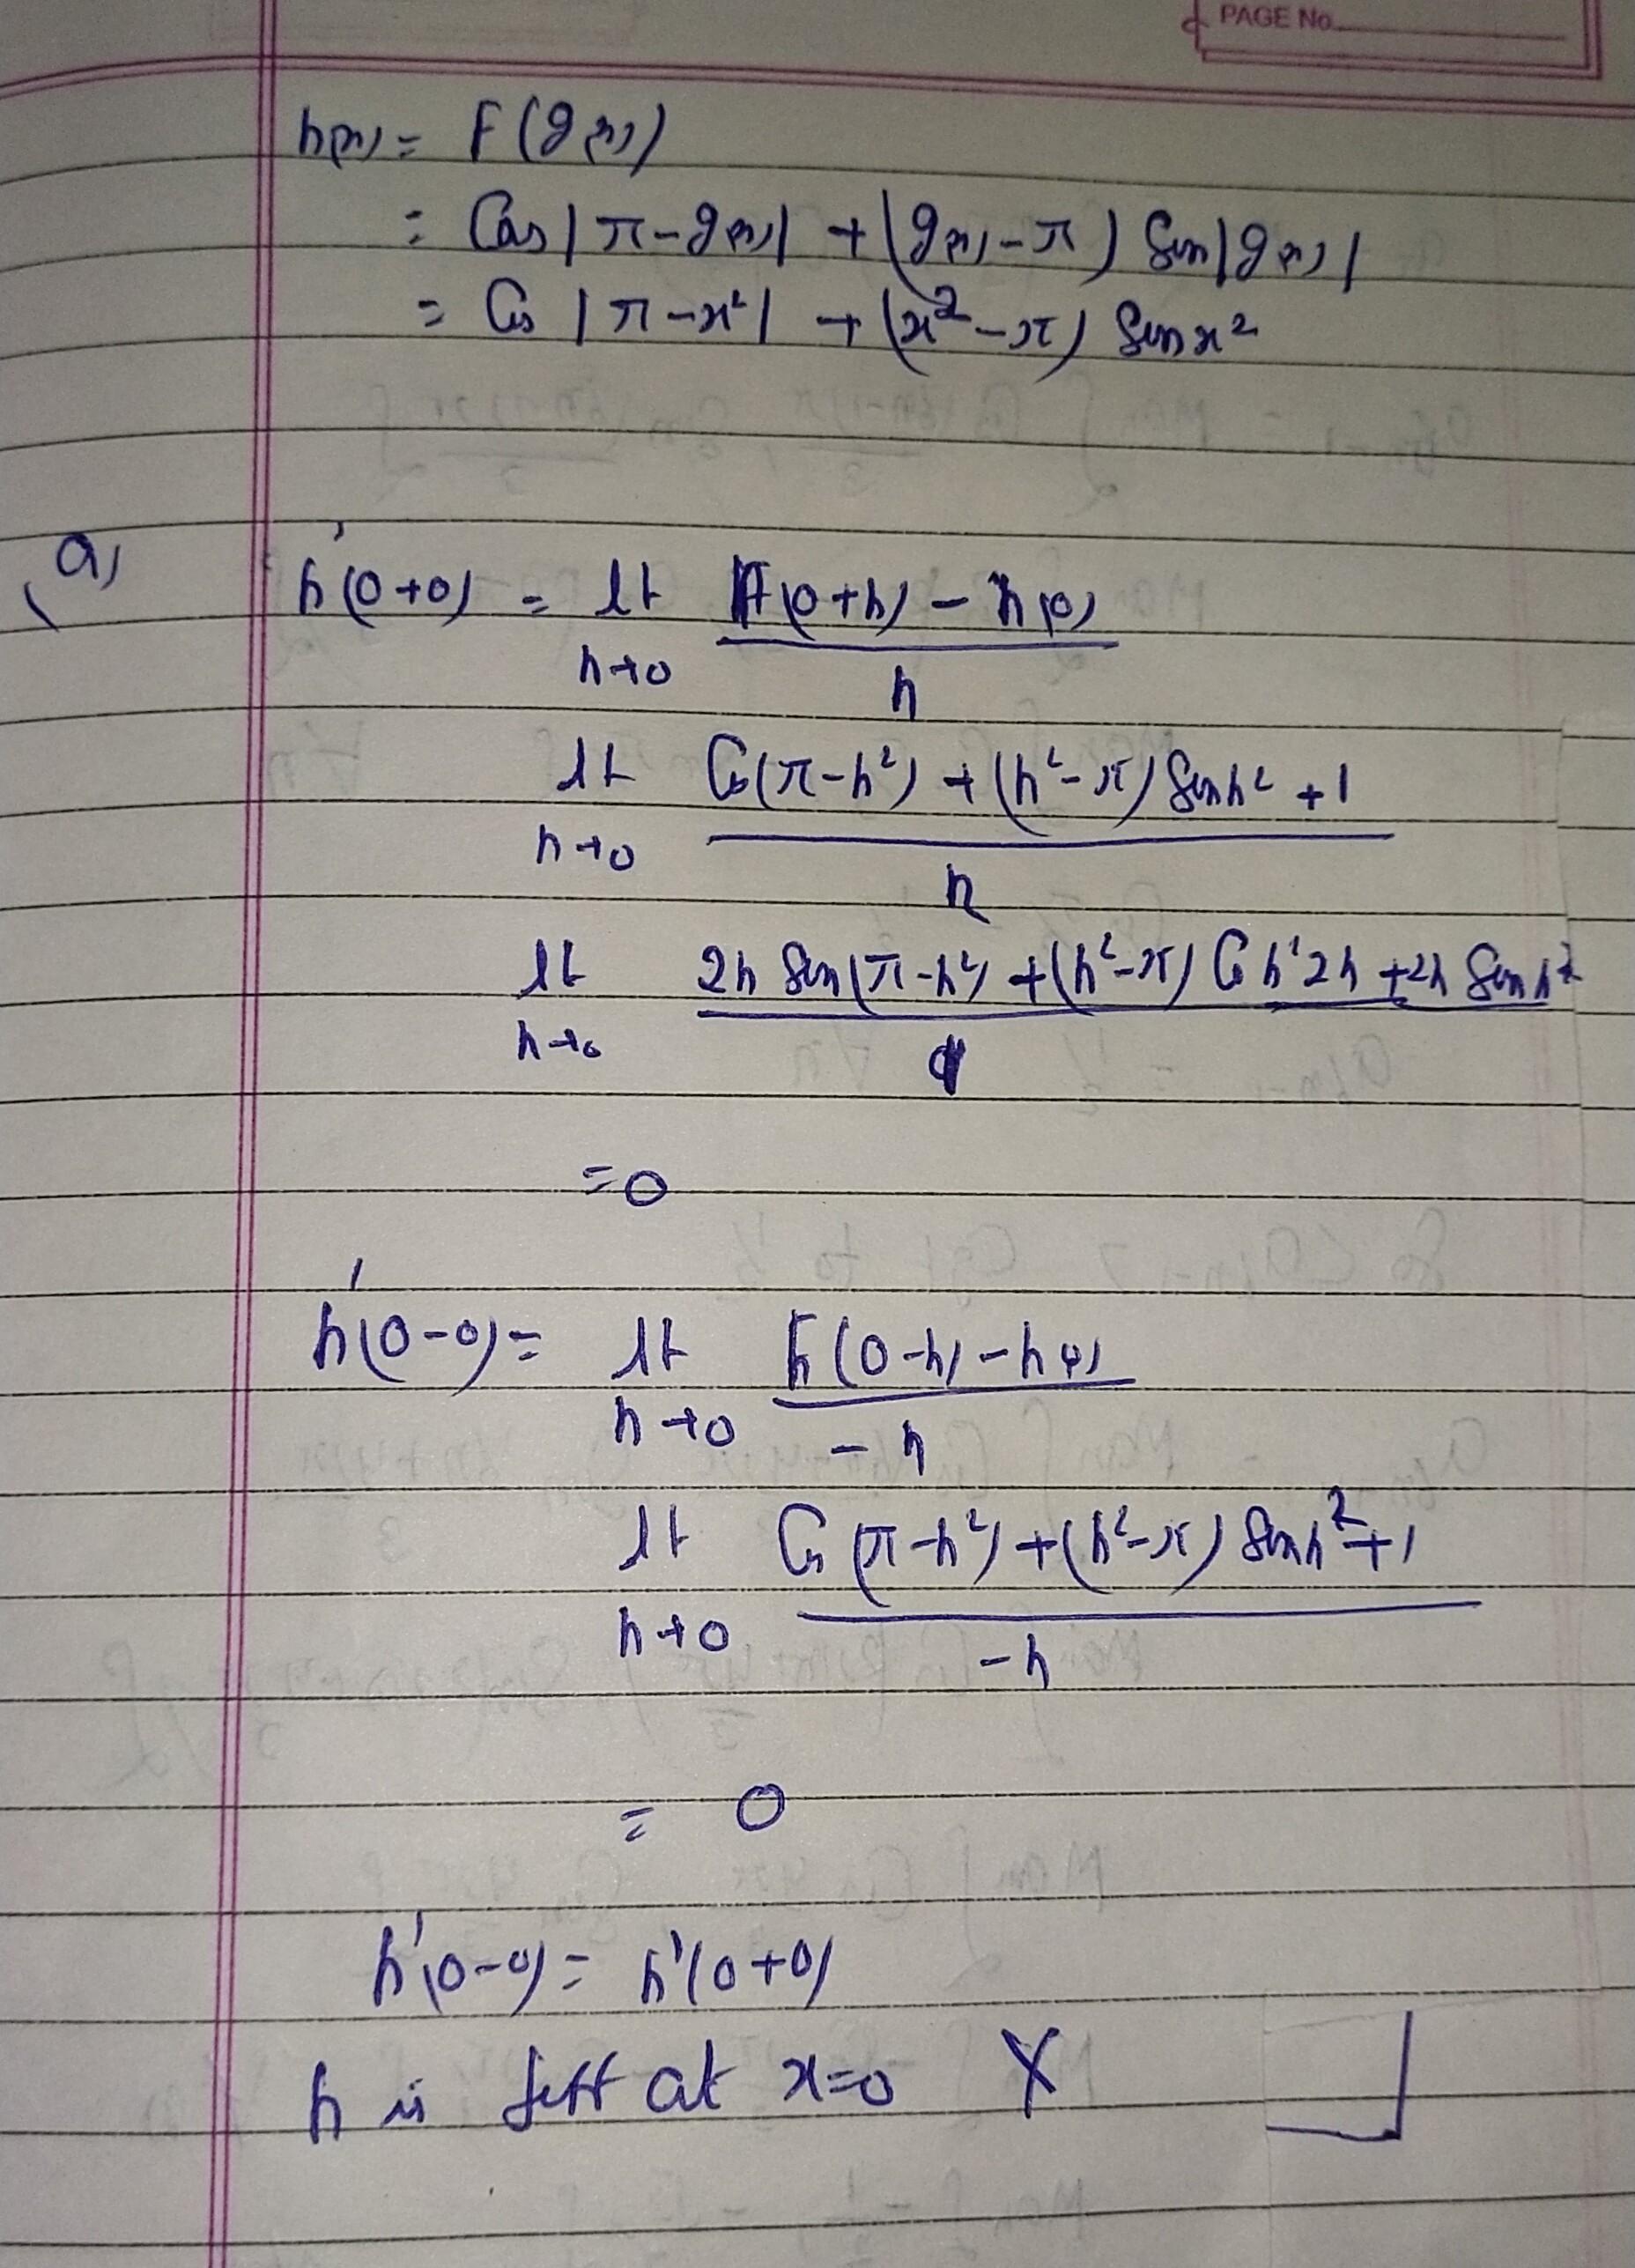 PAGE No.
h(x) = F(g(x))
= Cos|π-g(x)| + (g(x)-π) Sin|g(x)|
= Cos |π-x²| + (x²-π) Sin x²
(a) h'(0+0) = lt h(0+h) - h(0)
h→0 h
lt Cos(π-h²) + (h²-π) Sin h² + 1
h→0 h
lt 2h Sin(π-h²) + (h²-π) Cos h² 2h + 2h Sin h²
h→0 1
= 0
h'(0-0) = lt h(0-h) - h(0)
h→0 -h
lt Cos (π-h²) + (h²-π) Sin h² + 1
h→0 -h
= 0
h'(0-0) = h'(0+0)
h is diff at x=0 X